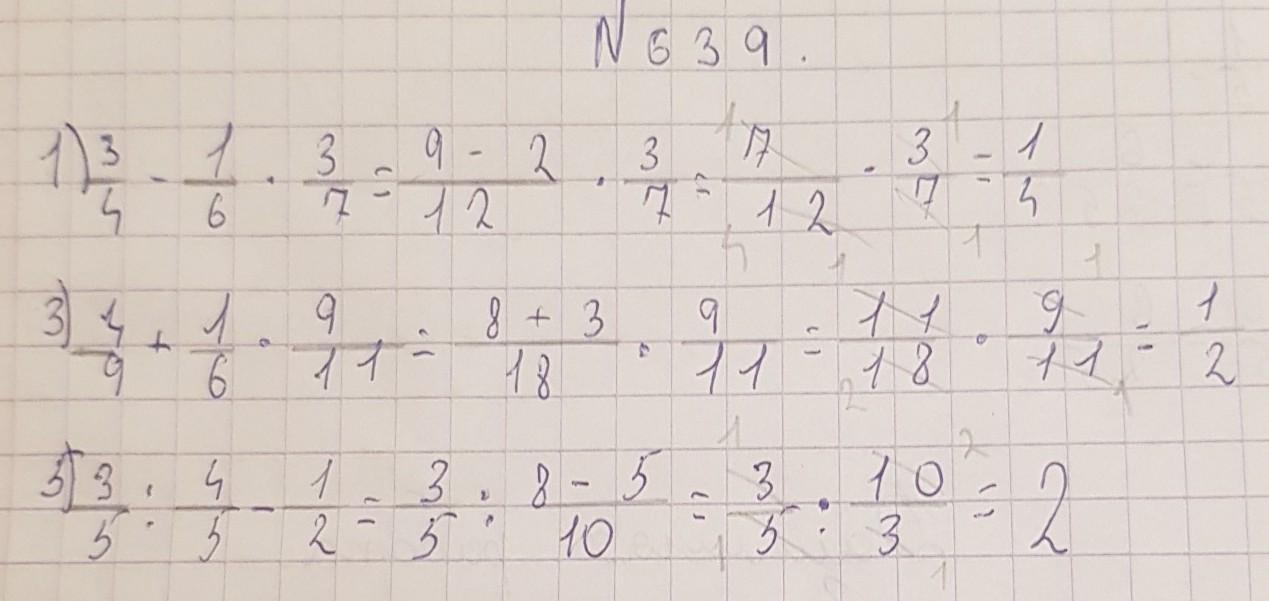 N 639.
1) 3/4 - 1/6 · 3/7 = 9 - 2/12 · 3/7 = 7/12 · 3/7 = 1/4
3) 4/9 + 1/6 · 9/11 = 8 + 3/18 · 9/11 = 11/18 · 9/11 = 1/2
5) 3/5 : 4/5 - 1/2 = 3/5 : 8 - 5/10 = 3/5 : 10/3 = 2